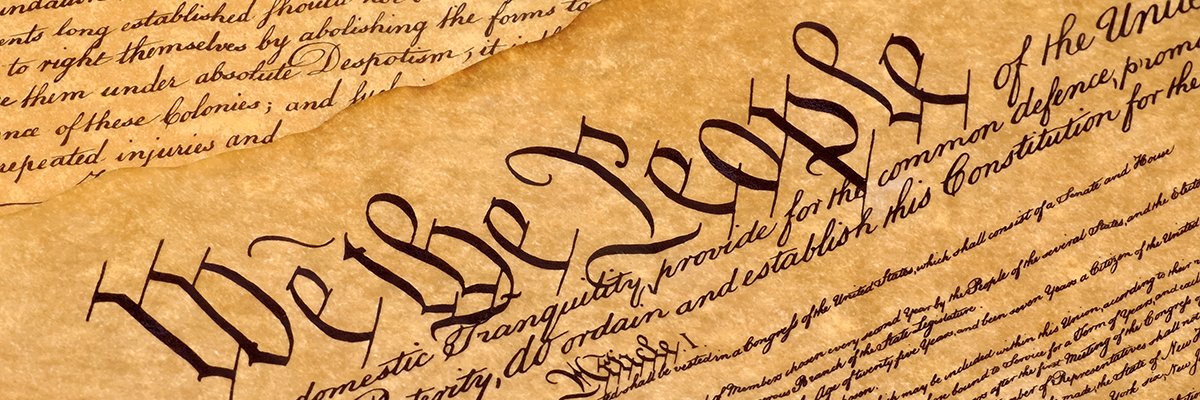 ents long established should not
to right themselves by abolishing the forms to
them under absolute Despotism, it is th
nce of these Colonies; and
repeated injuries and
We the People
of the Unite
domestic Tranquility, provide for the common defence, promo
Posterity, do ordain and establish this Constitution for the
Article. I.
shall be vested in a Congress of the United States, which shall consist of a Senate and House
of Members chosen every second Year by the People of the several States, and the Elect
Branch of the State Legislature.
Age of twenty five Years, and been seven Years a Citizen of the United
may be included within this Union, according to their
bound to Service for a Term of Years, and
after the first Meeting of the Congress
of Representatives shall not
made, the State of New
York six, New